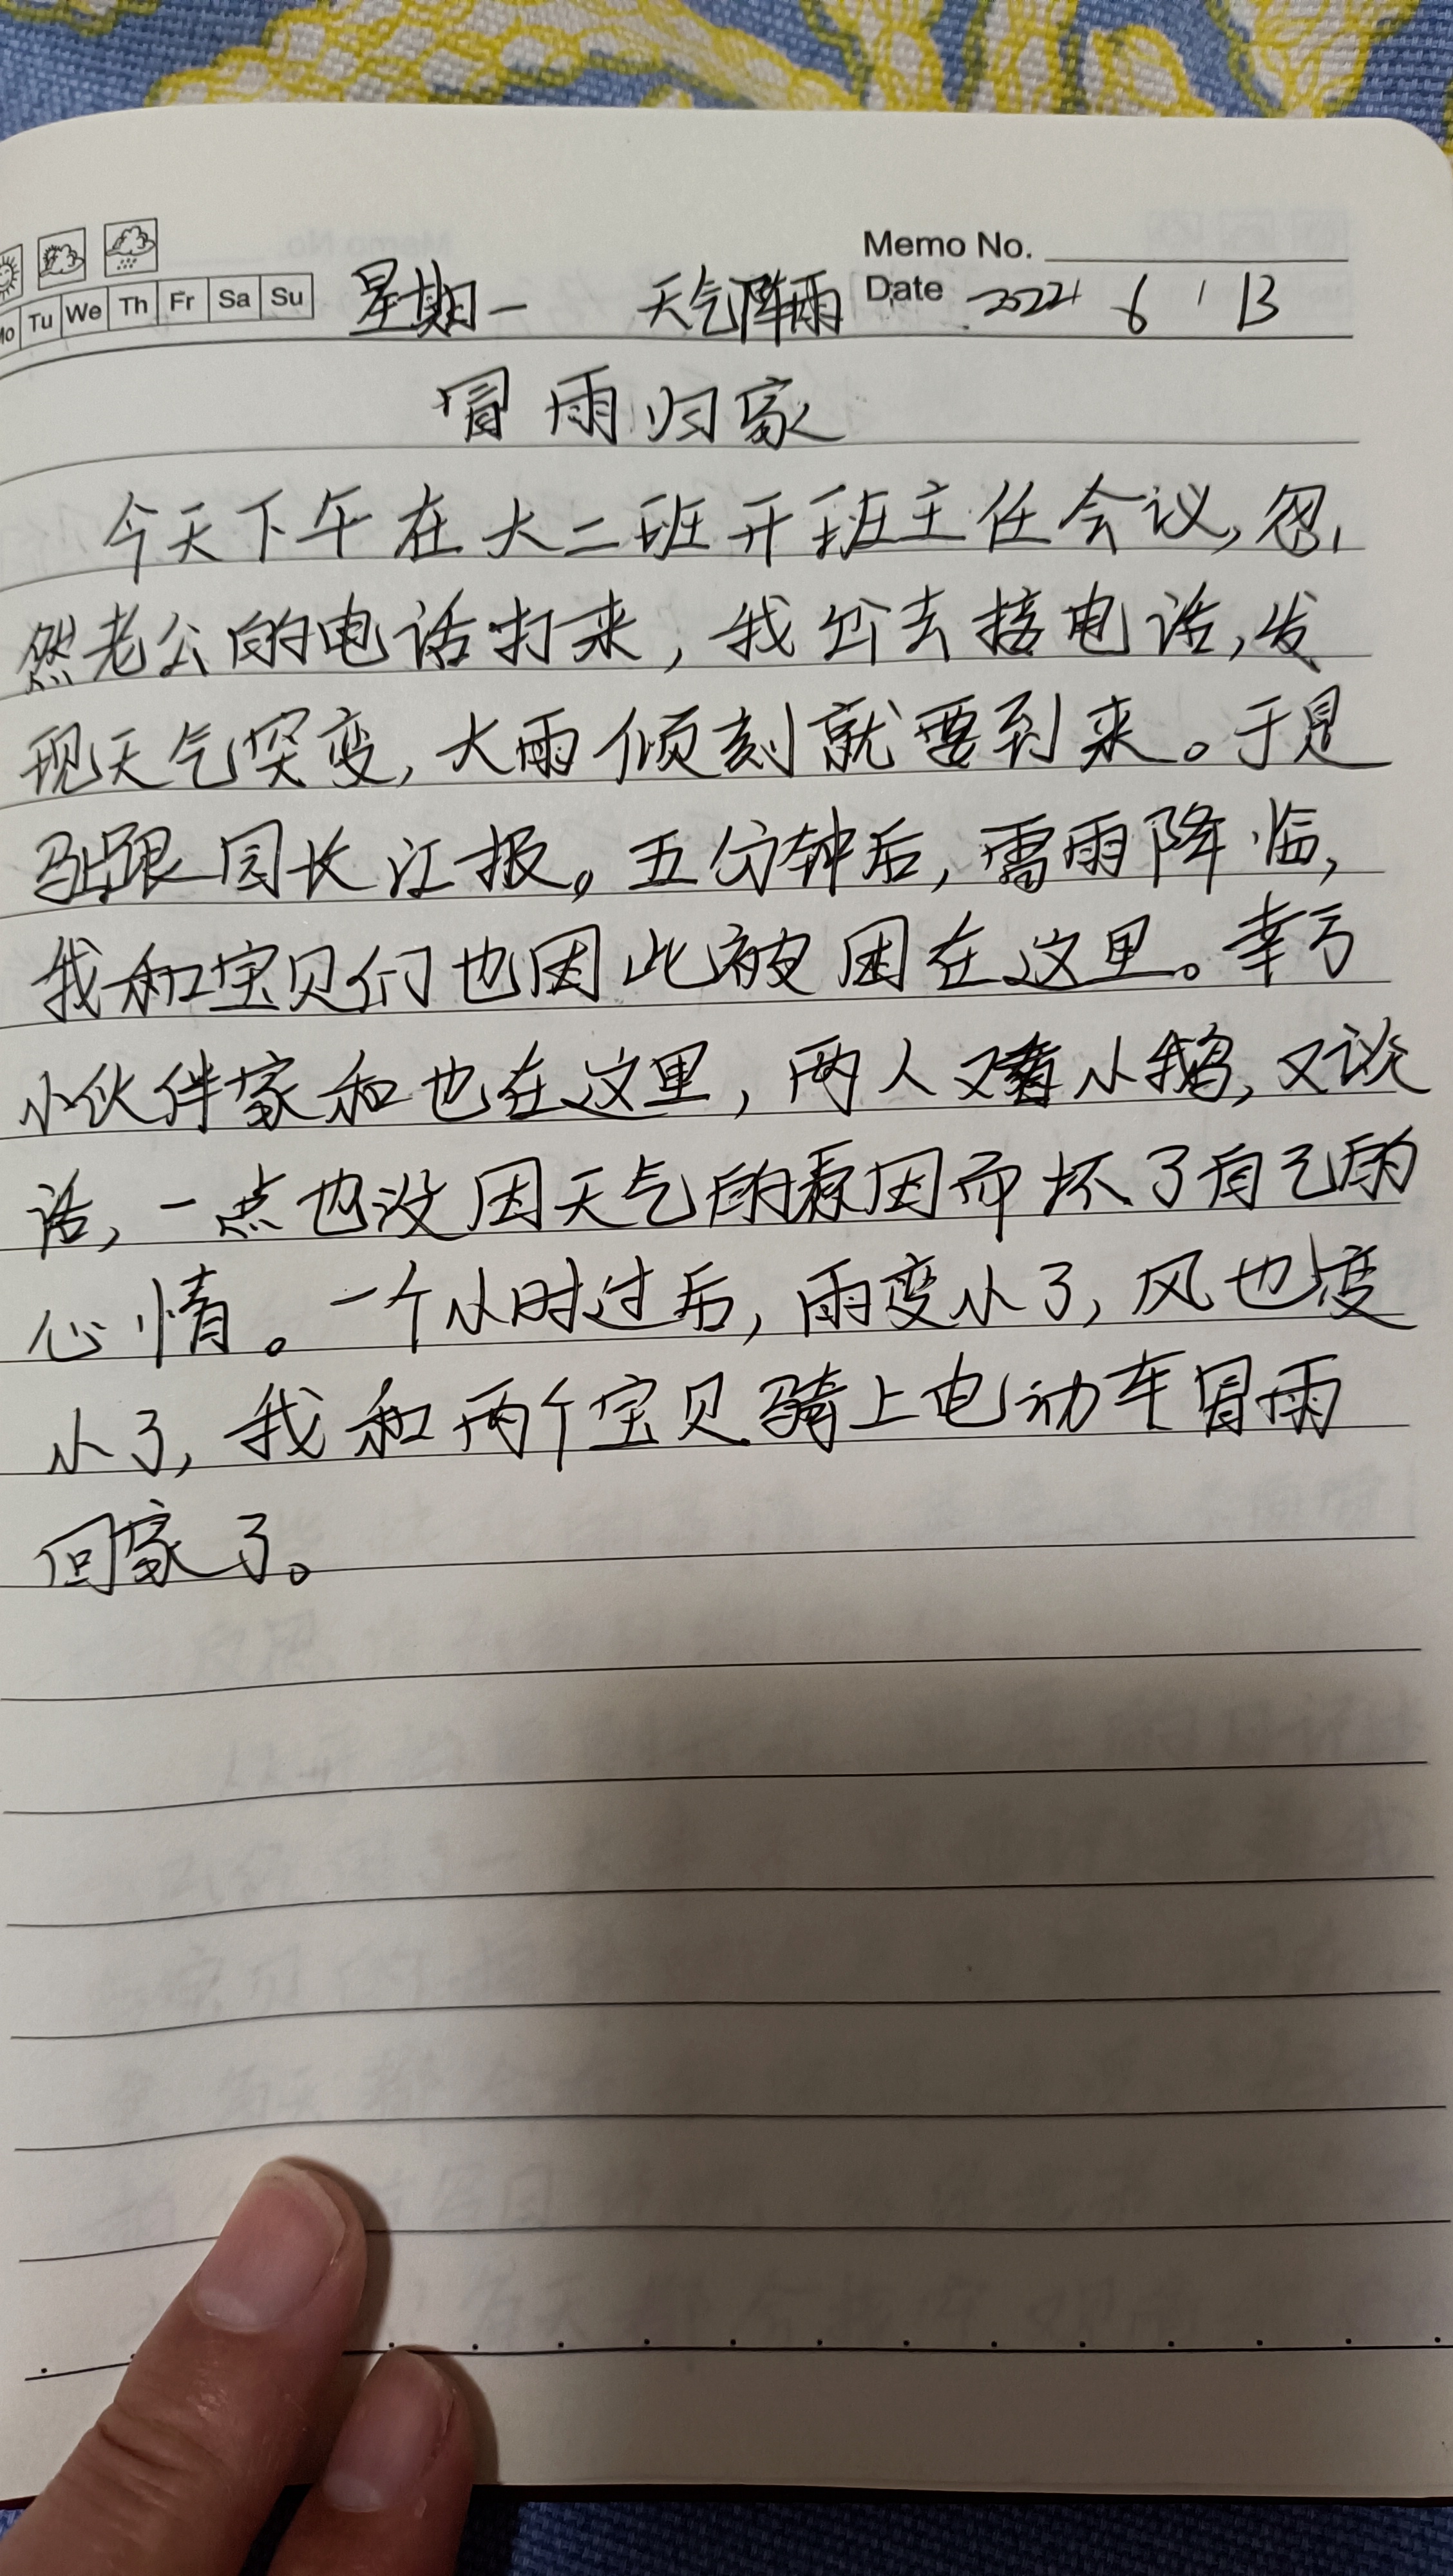 Memo No.
Mo Tu We Th Fr Sa Su 星期一 天气阵雨 Date 2022 6 13
冒雨归家
今天下午在大二班开班主任会议,忽
然老公的电话打来,我出去接电话,发
现天气突变,大雨倾刻就要到来。于是
马上跟园长汇报。五分钟后,雷雨降临,
我和宝贝们也因此被困在这里。幸亏
小伙伴家和也在这里,两人又看小鹅,又谈
话,一点也没因天气的原因而坏了自己的
心情。一个小时过后,雨变小了,风也变
小了,我和两个宝贝骑上电动车冒雨
回家了。